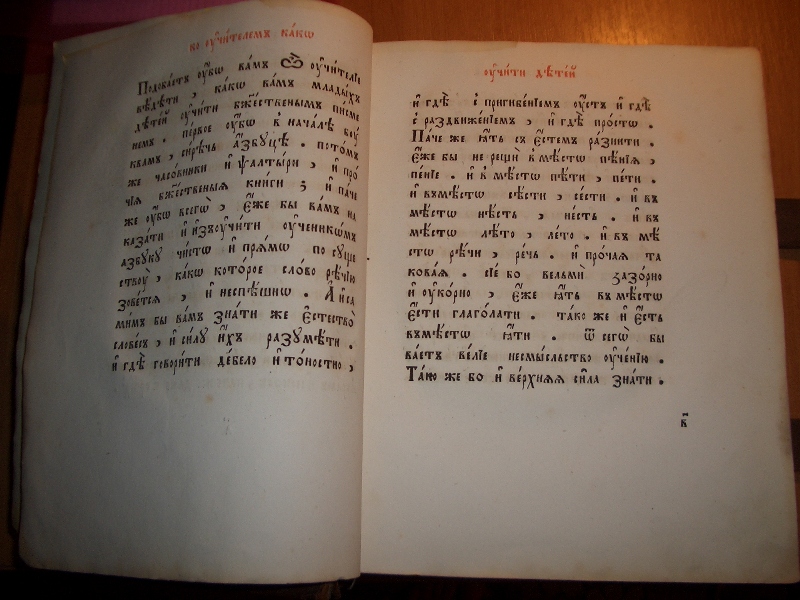 ко ᲂу҆чи́телемъ ка́кѡ
Подоба́етъ ᲂу҆́бѡ ва́мъ ѽ ᲂу҆чи́телїе
вѣ́дѣти , ка́кѡ ва́мъ млады́хъ
дѣте́й ᲂу҆чи́ти бж҃е́ственымъ пи́сме
немъ . пе́рвое ᲂу҆́бѡ в нача́лѣ бꙋ́
квамъ , си́рѣчь а҆́збꙋцѣ . пото́мъ
же часо́вники и҆ ѱалты́ри , и҆ про́
чїѧ бж҃е́ственыѧ кни́ги ; и҆ па́че
же ᲂу҆́бѡ всегѡ̀ , є҆́же бы ва́мъ на
каза́ти и҆ и҆зꙋчи́ти ᲂу҆ченикѡ́мъ
а҆́збꙋкꙋ чи́стѡ и҆ пря́мѡ по сꙋще
ствꙋ̀ , ка́кѡ кото́рое сло́во рѣ́чїю
зове́тсѧ , и҆ неспѣ́шнѡ . А҆ и҆ са
ми́мъ бы ва́мъ зна́ти же є҆стество̀
слове́съ , и҆ си́лꙋ и҆́хъ разꙋмѣ́ти .
и҆ гдѣ̀ говори́ти де́бело и҆ то́ностно ,
ᲂу҆чи́ти дѣте́й
и҆ гдѣ̀ с пригибе́нїемъ ᲂу҆́стъ и҆ гдѣ
с раздвиже́нїемъ , и҆ гдѣ̀ про́стѡ .
Па́че же ꙗ҆́ть съ є҆́стемъ ра́знити .
є҆́же бы не рещѝ в мѣ́стѡ пѣ́нїѧ ,
пе́нїе . и҆ в мѣ́стѡ пѣ́ти , пе́ти .
и҆ въ мѣ́стѡ сѣ́сти , се́сти . и҆ въ
мѣ́стѡ нѣ́сть , не́сть . и҆ въ
мѣ́стѡ лѣ́то , ле́то . и҆ въ мѣ́
стѡ рѣ́чи , ре́чь . и҆ про́чаѧ та
кова́ѧ . сїе́ бо вельмѝ зазо́рно
и҆ ᲂу҆ко́рно , є҆́же ꙗ҆́ть въ мѣ́стѡ
є҆́сти глаго́лати . та́ко же и҆ є҆́сть
въ мѣ́стѡ ꙗ҆́ти . ѿ сегѡ̀ бы
ва́етъ ве́лїе несмы́сльство ᲂу҆че́нїю .
Та́ю же бо и҆ ве́рхнѧѧ си́ла зна́ти .
в҃